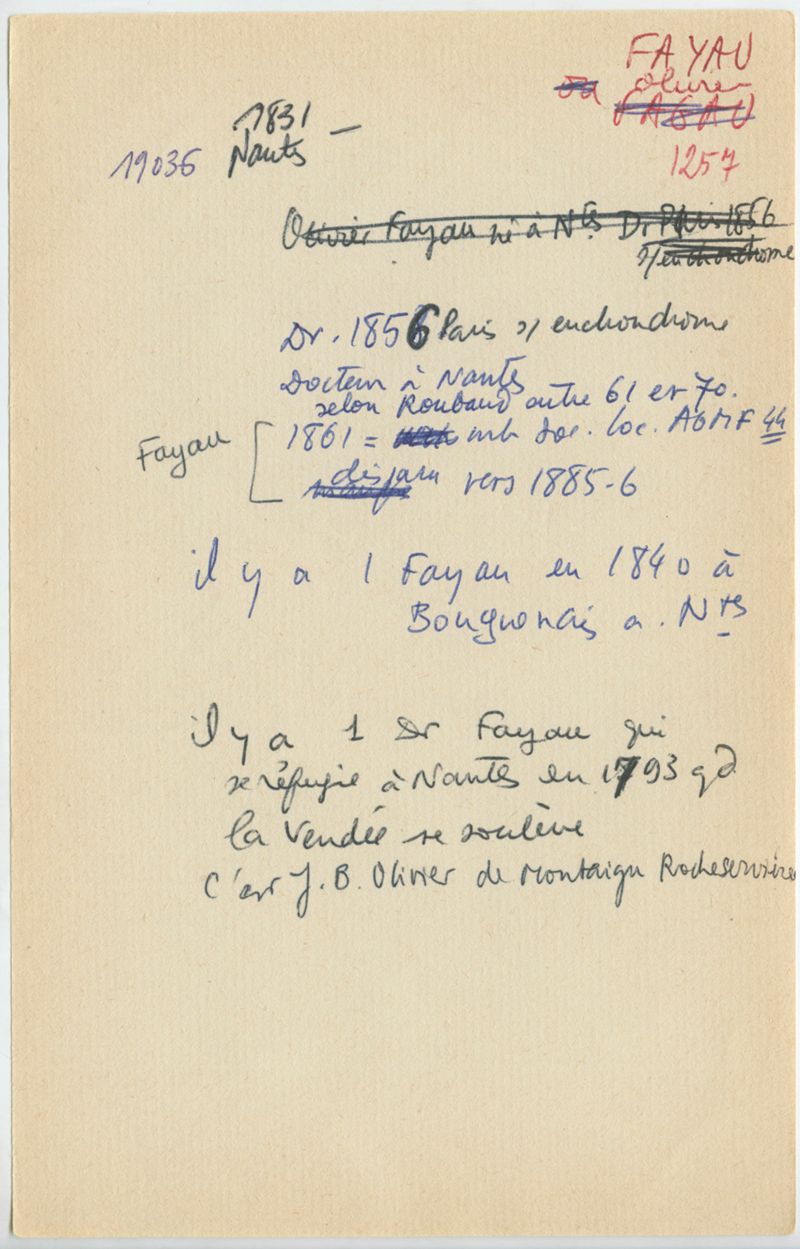 FAYAU
ou Olivier
FAGAU
1831 —
19036 Nantes
1257
Olivier Fayau né à Nts Dr Paris 1856
s/enchondrome
Dr. 1856 Paris s/ enchondrome
Docteur à Nantes
selon Roubaud entre 61 et 70.
Fayau
1861 = mb soc. loc. AGMF 44
disparu vers 1885-6
il y a 1 Fayau en 1840 à
Bouguenais a. Nts
il y a 1 Dr Fayau qui
se réfugie à Nantes en 1793 qd
la Vendée se soulève
C'est J. B. Olivier de Montaigu Rocheservière